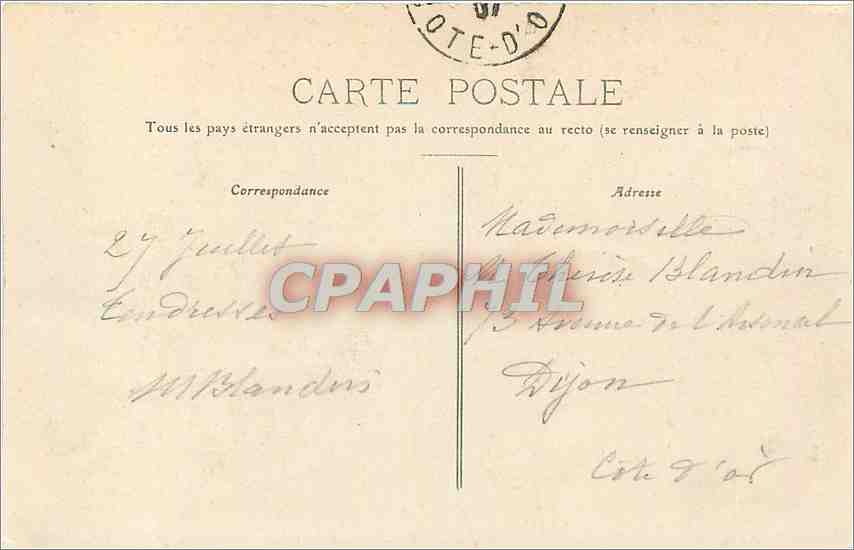 07
OTE-D'O
CARTE POSTALE
Tous les pays étrangers n'acceptent pas la correspondance au recto (se renseigner à la poste)
Correspondance
27 Juillet
tendresses
M Blandin
Adresse
Mademoiselle
M. Thérèse Blandin
73 Avenue de l'Arsenal
Dijon
Côte d'or
CPAPHIL